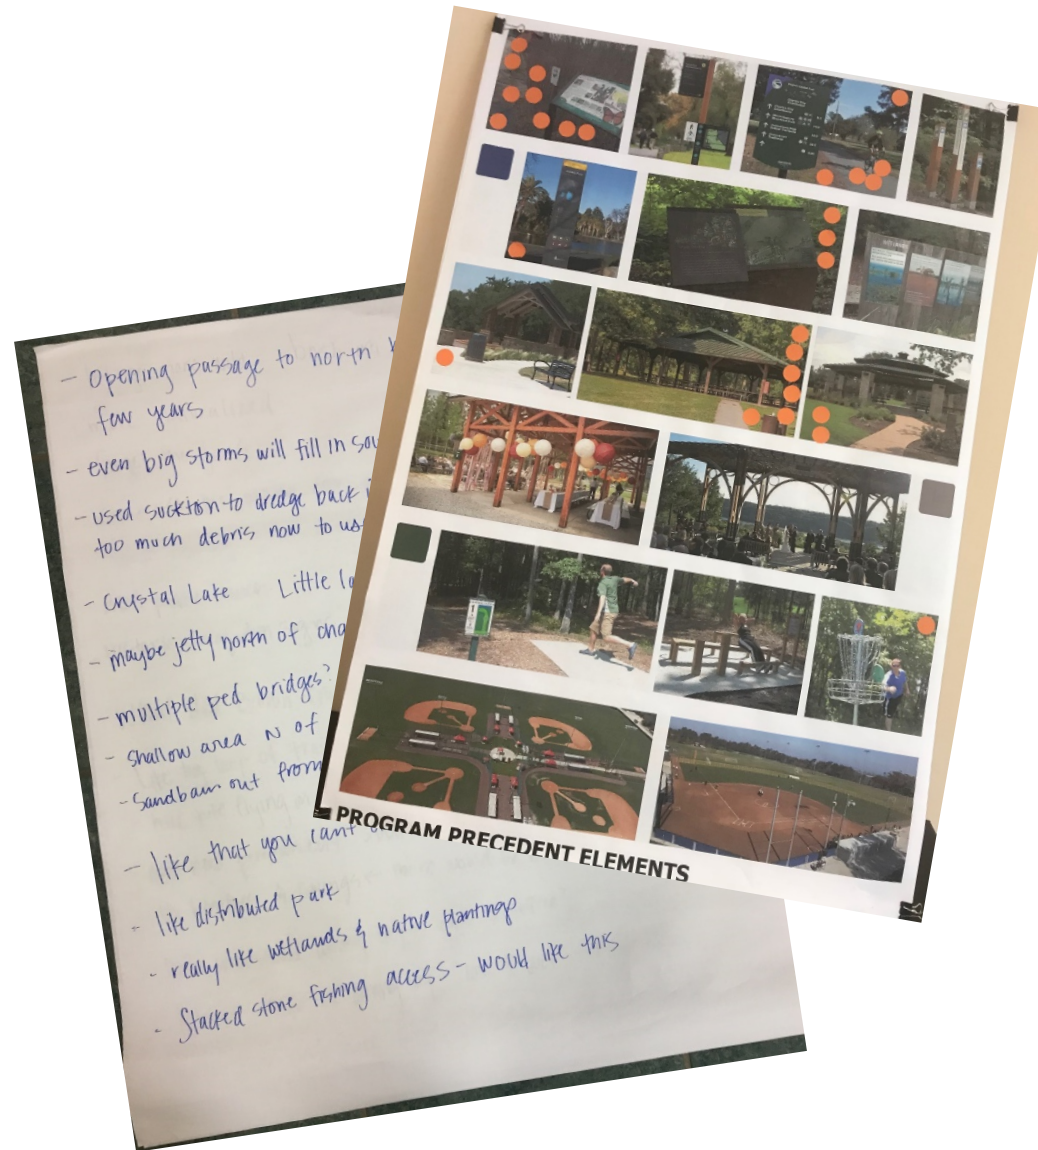 - Opening passage to north
few years
- even big storms will fill in
- used suction to dredge back
too much debris now to
- Crystal Lake Little
- maybe jetty north of
- multiple ped bridges?
- shallow area N of
- Sandbar out from
- like that you can't
- like distributed park
- really like wetlands & native plantings
- Stacked stone fishing access - would like this
PROGRAM PRECEDENT ELEMENTS